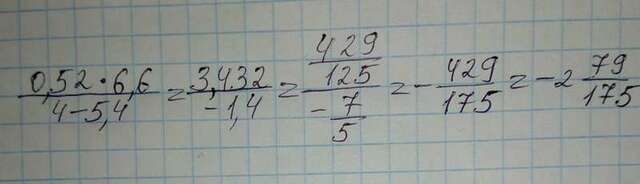 (0,52·6,6)/(4-5,4) = 3,432/(-1,4) = (429/125)/(-7/5) = -429/175 = -2 79/175